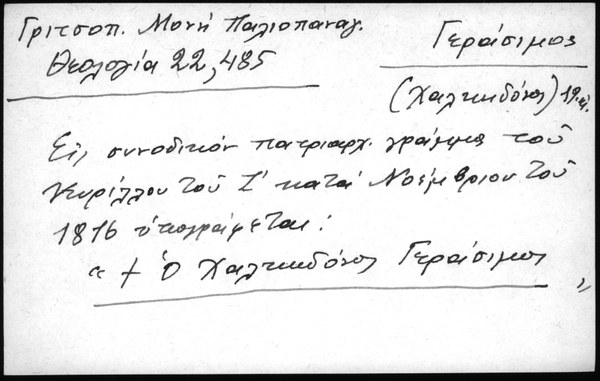 Γριτσοπ. Μονή Παλιοπαναγ.
Θεολογία 22, 485
Γεράσιμος
(Χαλκηδόνος) 19. αἰ.
Εἰς συνοδικόν πατριαρχ. γράμμα τοῦ
Κυρίλλου τοῦ Ϛ' κατά Νοέμβριον τοῦ
1816 ὑπογράφεται:
" + Ὁ Χαλκηδόνος Γεράσιμος "